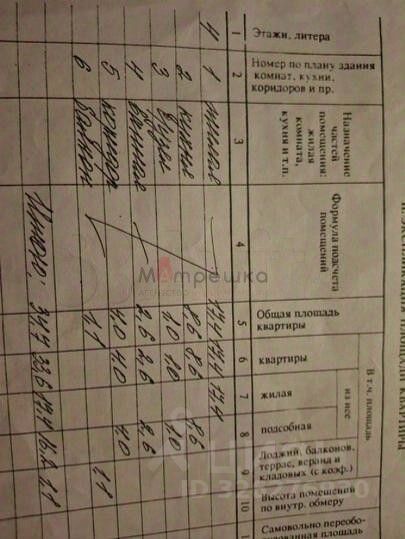 ЭКСПЛИКАЦИЯ ПЛОЩАДИ КВАРТИРЫ
Этажи, литера
Номер по плану здания комнат, кухни, коридоров и пр.
Назначение частей помещения: жилая комната, кухня и т.п.
Формула подсчета помещений
Общая площадь квартиры
В т.ч. площадь
квартиры
из нее
жилая
подсобная
Лоджий, балконов, террас, веранд и кладовых (с коэф.)
Высота помещений по внутр. обмеру
Самовольно переобо-
площадь
1 2 3 4 5 6 7 8 9 10
4 1 жилая 17,4 17,4 17,4
2 кухня 8,6 8,6 8,6
3 1,0 1,0 1,0
4 ванная 2,6 2,6 2,6
5 коридор 4,0 4,0 4,0
6 балкон 1,1 1,1
Итого: 34,7 33,6 17,4 16,2 1,1
Матрешка
АГЕНТСТВО
ЦИАН